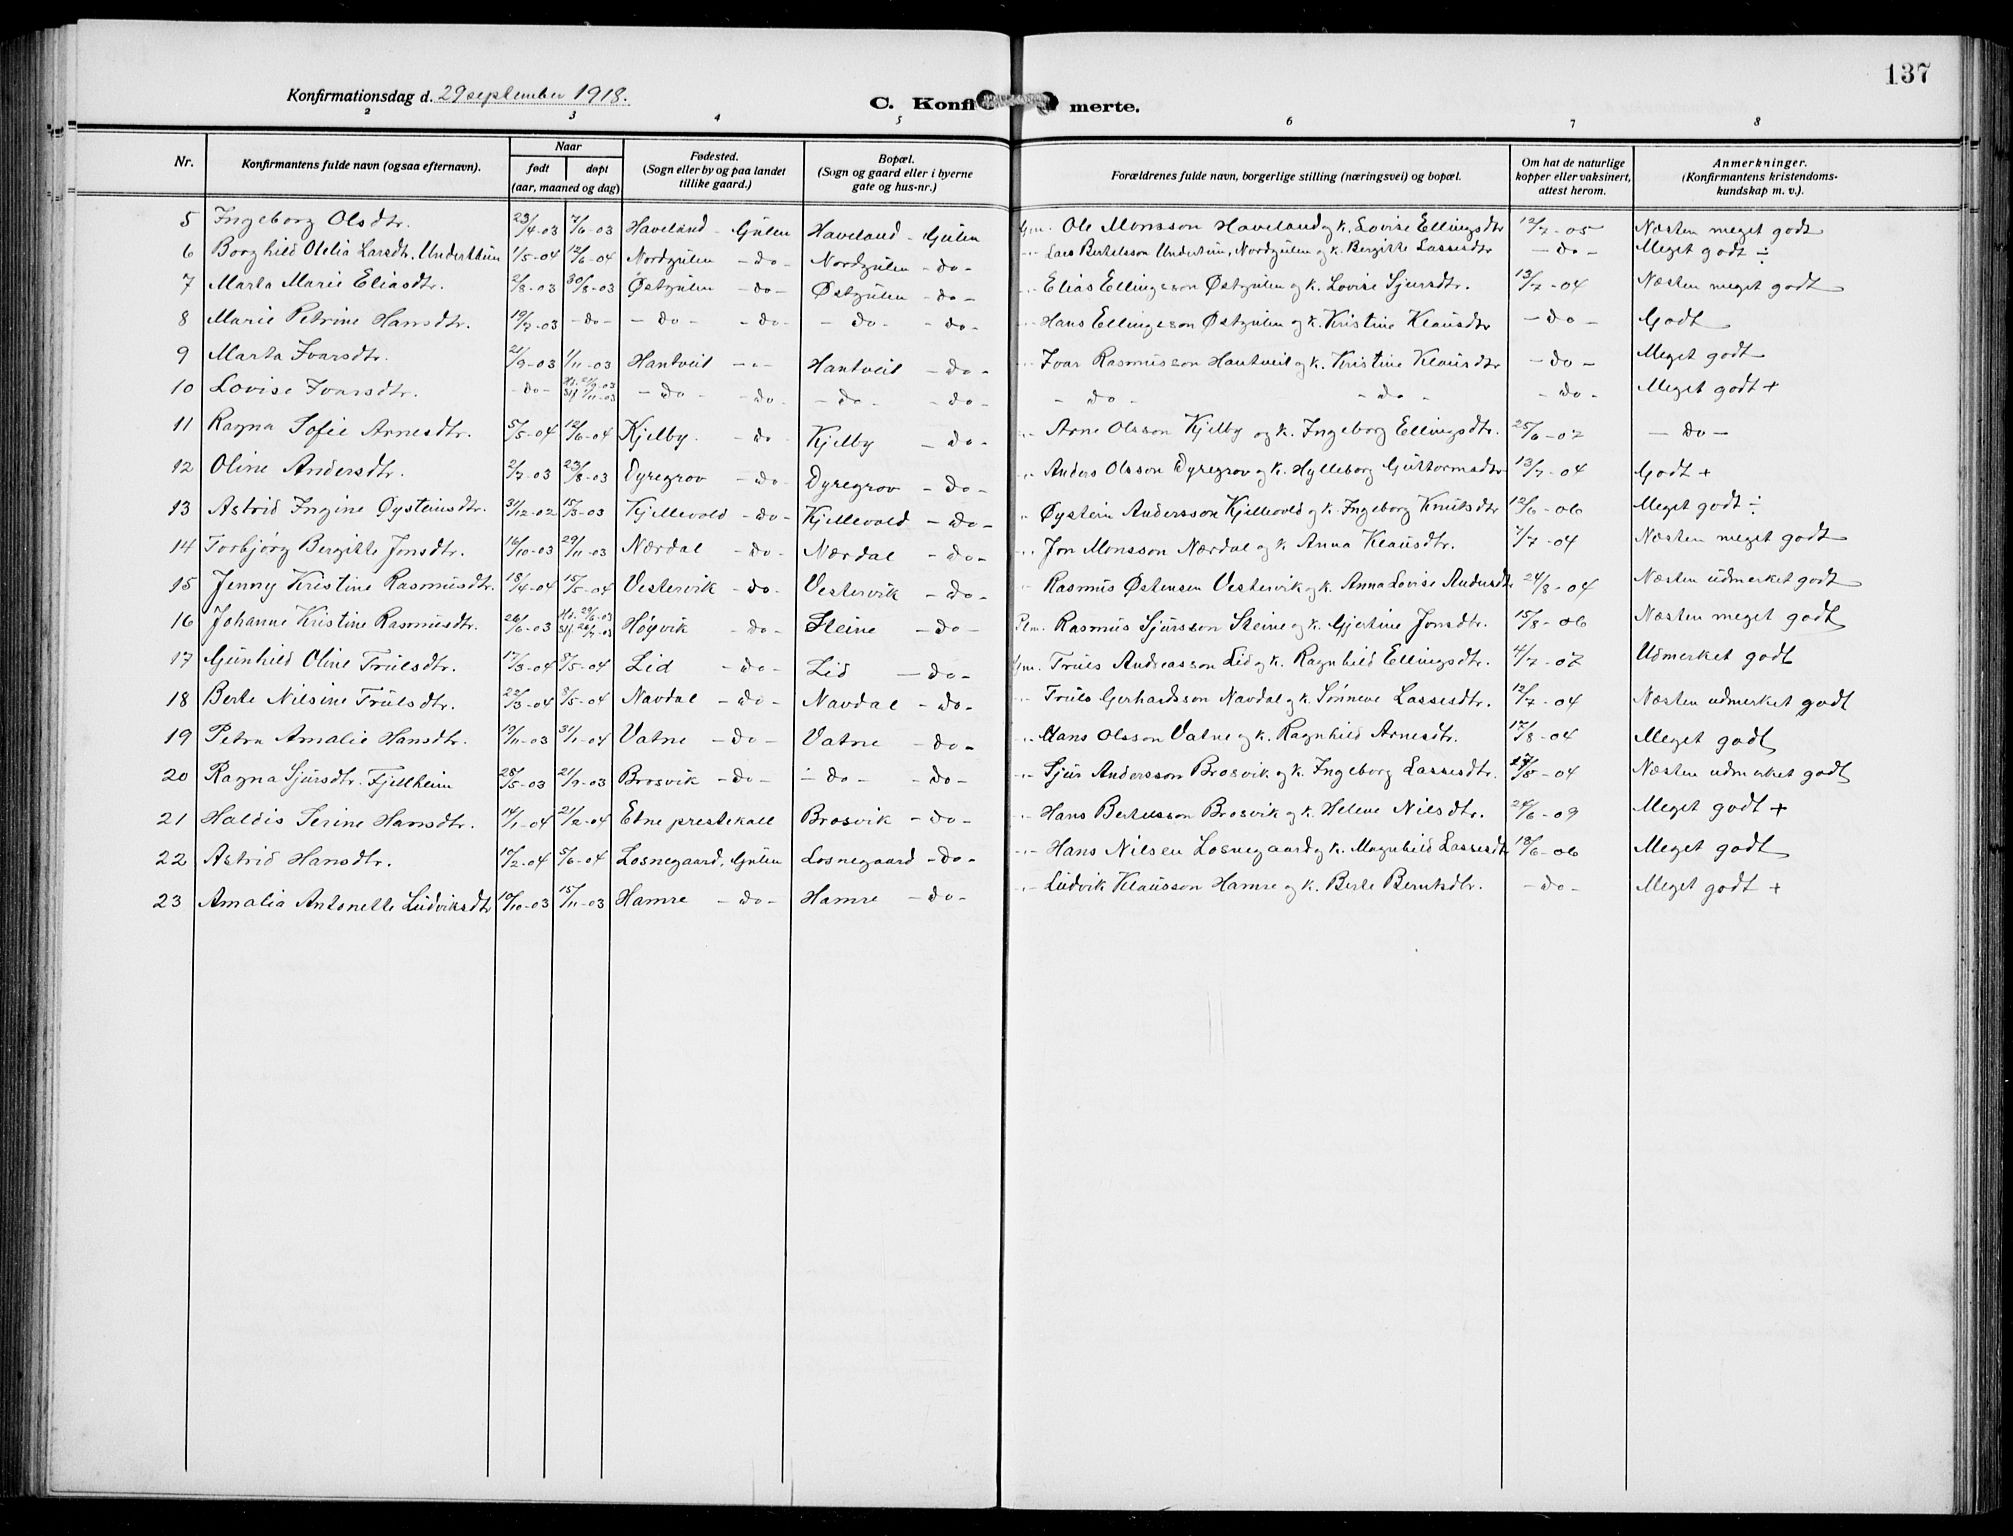 137
Konfirmationsdag d. 29 september 1918.
C. Konfi merte.
2 3 4 5 6 7 8
Nr. Konfirmantens fulde navn (ogsaa efternavn). Naar født døpt (aar, maaned og dag) Fødested. (Sogn eller by og paa landet tillike gaard.) Bopæl. (Sogn og gaard eller i byerne gate og hus-nr.) Forældrenes fulde navn, borgerlige stilling (næringsvei) og bopæl. Om hat de naturlige kopper eller vaksinert, attest herom. Anmerkninger. (Konfirmantens kristendoms- kundskap m. v.).
5 Ingeborg Olsdtr. 23/4-03 7/6-03 Haveland - Gulen Haveland - Gulen Gm. Ole Monsson Haveland og k. Lovise Ellingsdtr 12/7-05 Næsten meget godt
6 Borghild Otelia Larsdtr. Underthun 1/5-04 12/6-04 Nordgulen -do- Nordgulen -do- -"- Lars Bertelsson Undertun, Nordgulen og k. Bergitte Lassesdtr -do- Meget godt ÷
7 Marta Marie Eliasdtr. 2/8-03 30/8-03 Østgulen -do- Østgulen -do- -"- Elias Ellingsson Østgulen og k. Lovise Sjursdtr. 13/7-04 Næsten meget godt
8 Marie Petrine Hansdtr. 19/7-03 -do- -do- -do- -do- -do- -"- Hans Ellingsson Østgulen og k. Kristine Klausdtr -do- Godt
9 Marta Ivarsdtr. 21/9-03 1/11-03 Hantveit -"- Hantveit -do- -"- Ivar Rasmusson Hantveit og k. Kristine Klausdtr -do- Meget godt
10 Lovise Ivarsdtr. -do- Hj. 21/9-03 Stf. 1/11-03 -do- -do- -do- -do- -do- -do- -do- Meget godt +
11 Ragna Sofie Arnesdtr. 5/5-04 12/6-04 Kjelby. -do- Kjelby -do- -"- Arne Olsson Kjelby og k. Ingeborg Ellingsdtr. 25/6-07 -do-
12 Oline Andersdtr. 2/7-03 23/8-03 Dyregrov -do- Dyregrov -do- -"- Anders Olsson Dyregrov og k. Hylleborg Guttormsdtr 13/7-04 Godt +
13 Astrid Ingine Øysteinsdtr. 31/12-02 15/3-03 Kjellevold -do- Kjellevold -do- " Øystein Andersson Kjellevold og k. Ingeborg Knutsdtr 12/6-06 Meget godt ÷
14 Torbjørg Bergitte Jonsdtr. 16/10-03 29/11-03 Nærdal -do- Nærdal -do- -"- Jon Monsson Nærdal og k. Anna Klausdtr. 7/7-04 Næsten meget godt
15 Jenny Kristine Rasmusdtr. 18/4-04 15/5-04 Vestervik -do- Vestervik -do- " Rasmus Østensen Vestervik og k. Anna Lovise Andersdtr 24/8-04 Næsten udmerket godt
16 Johanne Kristine Rasmusdtr. 26/6-03 Hj. 29/6-03 Stf. 26/7-03 Høgvik -do- Steine -do- Plm. Rasmus Sjursson Steine og k. Gjertine Jonsdtr. 15/8-06 Næsten meget godt
17 Gunhild Oline Trulsdtr. 17/3-04 8/5-04 Lid -do- Lid -do- Gm. Truls Andreasson Lid og k. Ragnhild Ellingsdtr. 4/7-07 Udmerket godt
18 Berte Nilsine Trulsdtr. 22/3-04 8/5-04 Navdal -do- Navdal -do- -"- Truls Gerhardsson Navdal og k. Sønneve Lassesdtr. 12/7-04 Næsten udmerket godt
19 Petra Amalie Hansdtr. 19/11-03 31/1-04 Vatne -do- Vatne -do- -"- Hans Olsson Vatne og k. Ragnhild Arnesdtr. 17/8-04 Meget godt
20 Ragna Sjursdtr. Fjellheim 28/5-03 21/9-03 Brosvik -do- -do- -do- -"- Sjur Andersson Brosvik og k. Ingeborg Lassesdtr. /5-04 Næsten udmerket godt
21 Haldis Serine Hansdtr. 14/1-04 21/2-04 Etne prestekall Brosvik -do- -"- Hans Bertusson Brosvik og k. Helene Nilsdtr. 24/6-09 Meget godt +
22 Astrid Hansdtr. 17/2-04 5/6-04 Losnegaard, Gulen Losnegaard -do- -"- Hans Nilsen Losnegaard og k. Magnhild Lassesdtr 13/6-06 Meget godt
23 Amalia Antonette Ludviksdtr 19/10-03 15/11-03 Hamre -do- Hamre -do- -"- Ludvik Klausson Hamre og k. Berte Berntsdtr. -do- Meget godt +